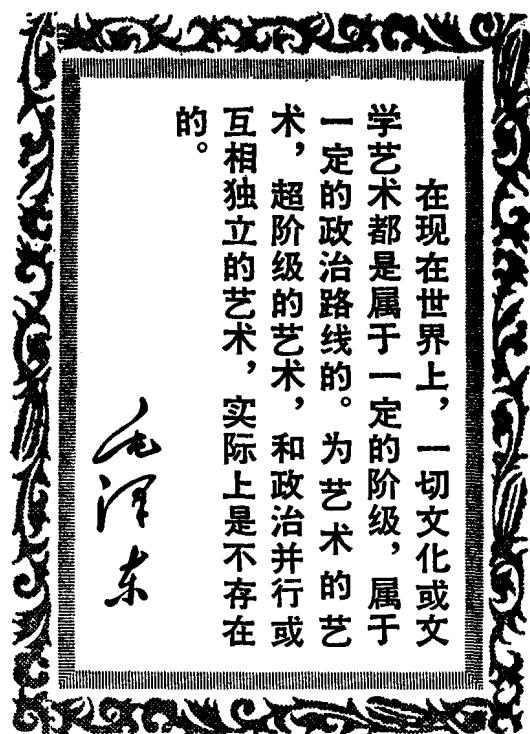 在现在世界上，一切文化或文
学艺术都是属于一定的阶级，属于
一定的政治路线的。为艺术的艺
术，超阶级的艺术，和政治并行或
互相独立的艺术，实际上是不存在
的。
毛泽东